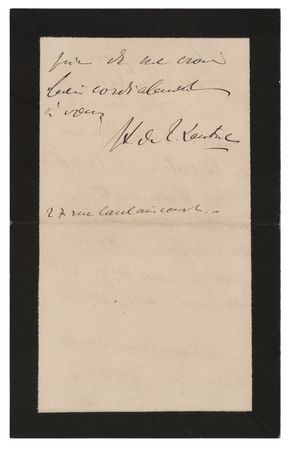 prie de me croire
bien cordialement
à vous
H de T. Lautrec
27 rue Caulaincourt.